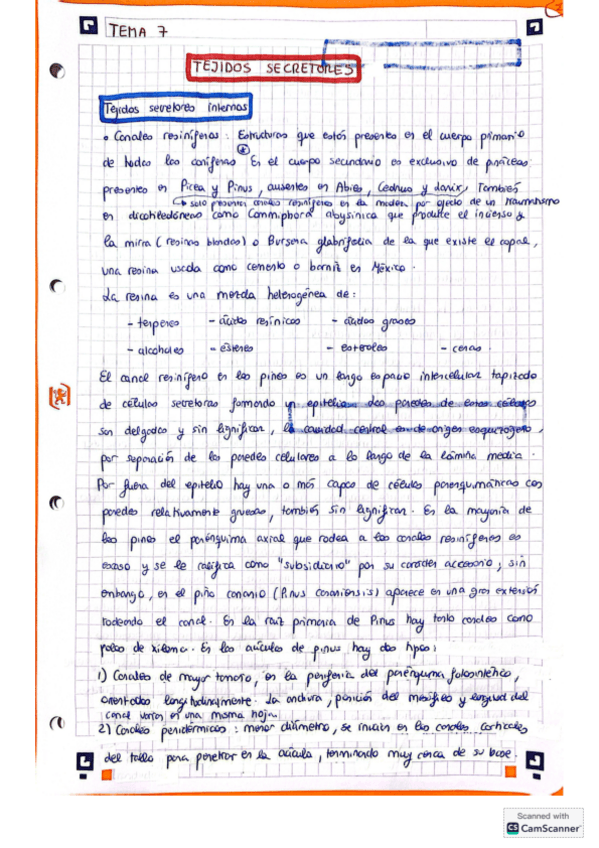 TEMA 7
TEJIDOS SECRETORES
Tejidos secretores internos
• Canales resiníferos: Estructuras que están presentes en el cuerpo primario
de todas las coníferas * En el cuerpo secundario es exclusivo de pináceas
presentes en Picea y Pinus, ausentes en Abies, Cedrus y Larix, también
↳ solo presentan canales resiníferos en la madera por efecto de un traumatismo
en dicotiledóneas como Commiphora abysinica que produce el incienso y
la mirra (resinas blandas) o Bursera glabrifolia de la que existe el copal,
una resina usada como cemento o barniz en México.
La resina es una mezcla heterogénea de:
- terpenos - ácidos resínicos - ácidos grasos
- alcoholes - ésteres - esteroles - ceras.
El canal resinífero en los pinos es un largo espacio intercelular tapizado
de células secretoras formando un epitelio. Las paredes de estas células
son delgadas y sin lignificar, la cavidad central es de origen esquizógeno,
por separación de las paredes celulares a lo largo de la lámina media.
Por fuera del epitelio hay una o más capas de células parenquimáticas con
paredes relativamente gruesas, también sin lignificar. En la mayoría de
los pinos el parénquima axial que rodea a los canales resiníferos es
escaso y se le califica como "subsidiario" por su carácter accesorio; sin
embargo, en el pino canario (Pinus canariensis) aparece en una gran extensión
rodeando el canal. En la raíz primaria de Pinus hay tanto canales como
polos de xilema. En las acículas de pinus hay dos tipos:
1) Canales de mayor tamaño, en la periferia del parénquima fotosintético,
orientados longitudinalmente. La anchura, posición del mesófilo y longitud del
canal varían en una misma hoja.
2) Canales peridérmicos: menor diámetro, se inician en los canales corticales
del tallo para penetrar en la acícula, terminando muy cerca de su base.
Scanned with
CS CamScanner